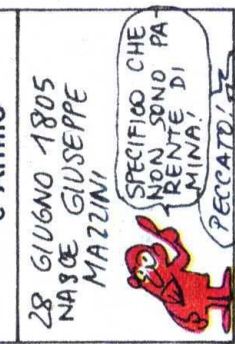 28 GIUGNO 1805
NASCE GIUSEPPE
MAZZINI
SPECIFICO CHE
NON SONO PA-
RENTE DI
MINA!
PECCATO!